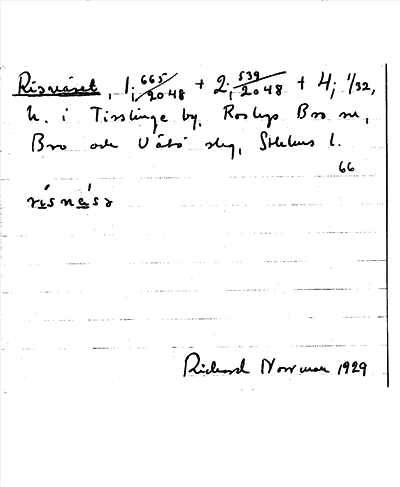 Risnäset, 1; 665/2048 + 2; 539/2048 + 4; 1/32,
h. i Tisslinge by, Roslags Bro sn,
Bro och Vätö slg, Sthlms l.
66
rísnä́sə
Richard Norrman 1929